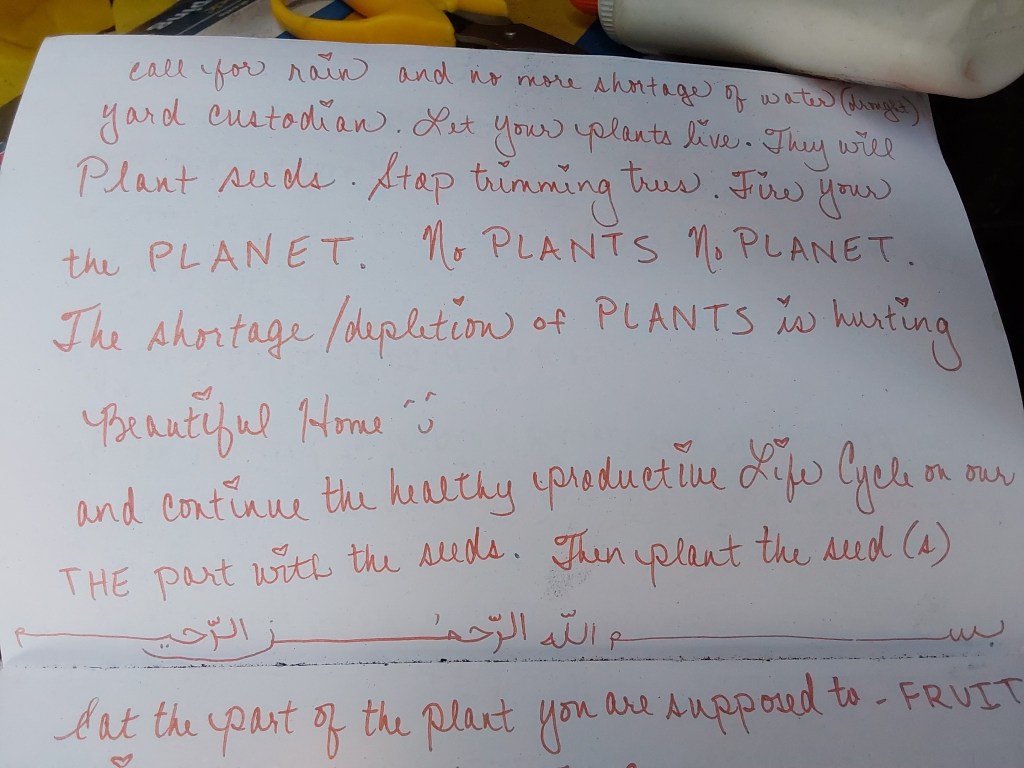 call for rain and no more shortage of water (drought)
yard custodian. Let your plants live. They will
Plant seeds. Stop trimming trees. Fire your
the PLANET. No PLANTS No PLANET.
The shortage/depletion of PLANTS is hurting
Beautiful Home
and continue the healthy productive Life Cycle on our
THE part with the seeds. Then plant the seed(s)
بسم اللّه الرّحمن الرّحيم
Eat the part of the plant you are supposed to - FRUIT